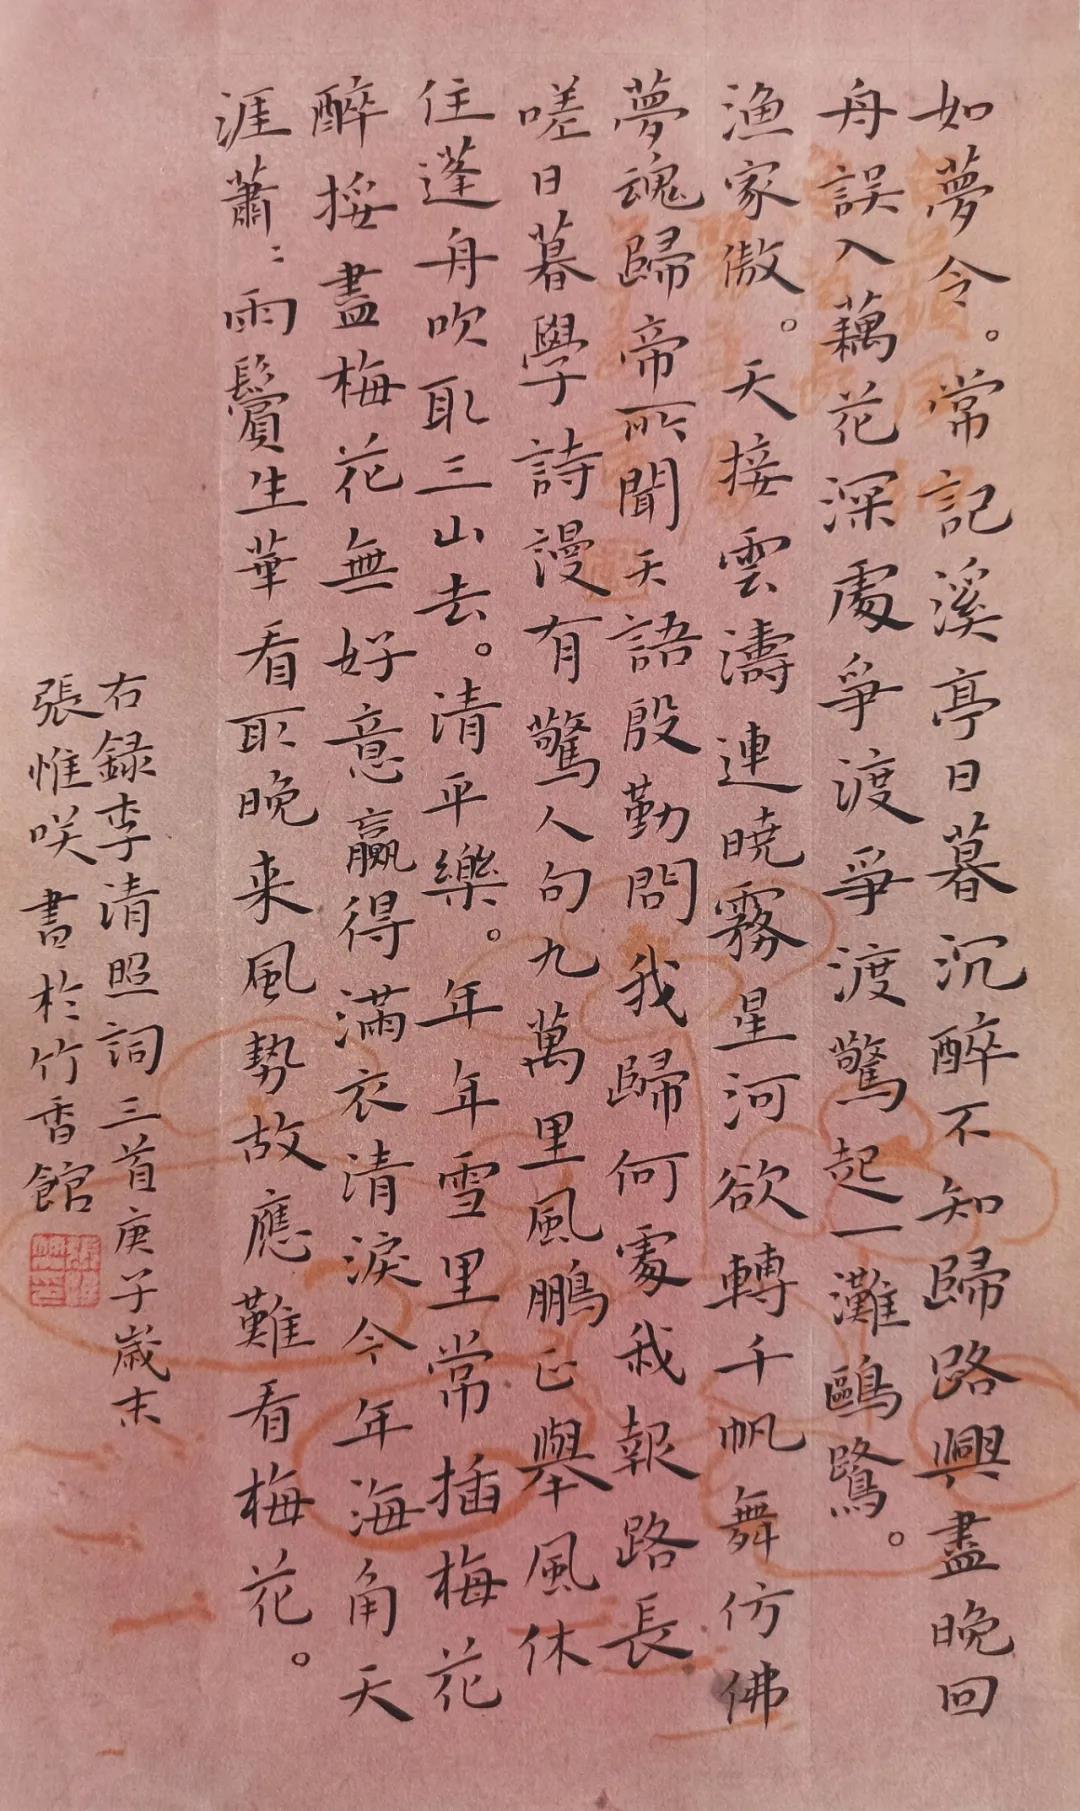 如夢令。常記溪亭日暮沉醉不知歸路興盡晚回
舟誤入藕花深處爭渡爭渡驚起一灘鷗鷺。
漁家傲。天接雲濤連曉霧星河欲轉千帆舞仿佛
夢魂歸帝所聞天語殷勤問我歸何處我報路長
嗟日暮學詩漫有驚人句九萬里風鵬正舉風休
住蓬舟吹取三山去。清平樂。年年雪里常插梅花
醉挼盡梅花無好意贏得滿衣清淚今年海角天
涯蕭:雨鬢生華看取晚来風勢故應難看梅花。
右録李清照詞三首庚子歲末
張惟咲書於竹香館